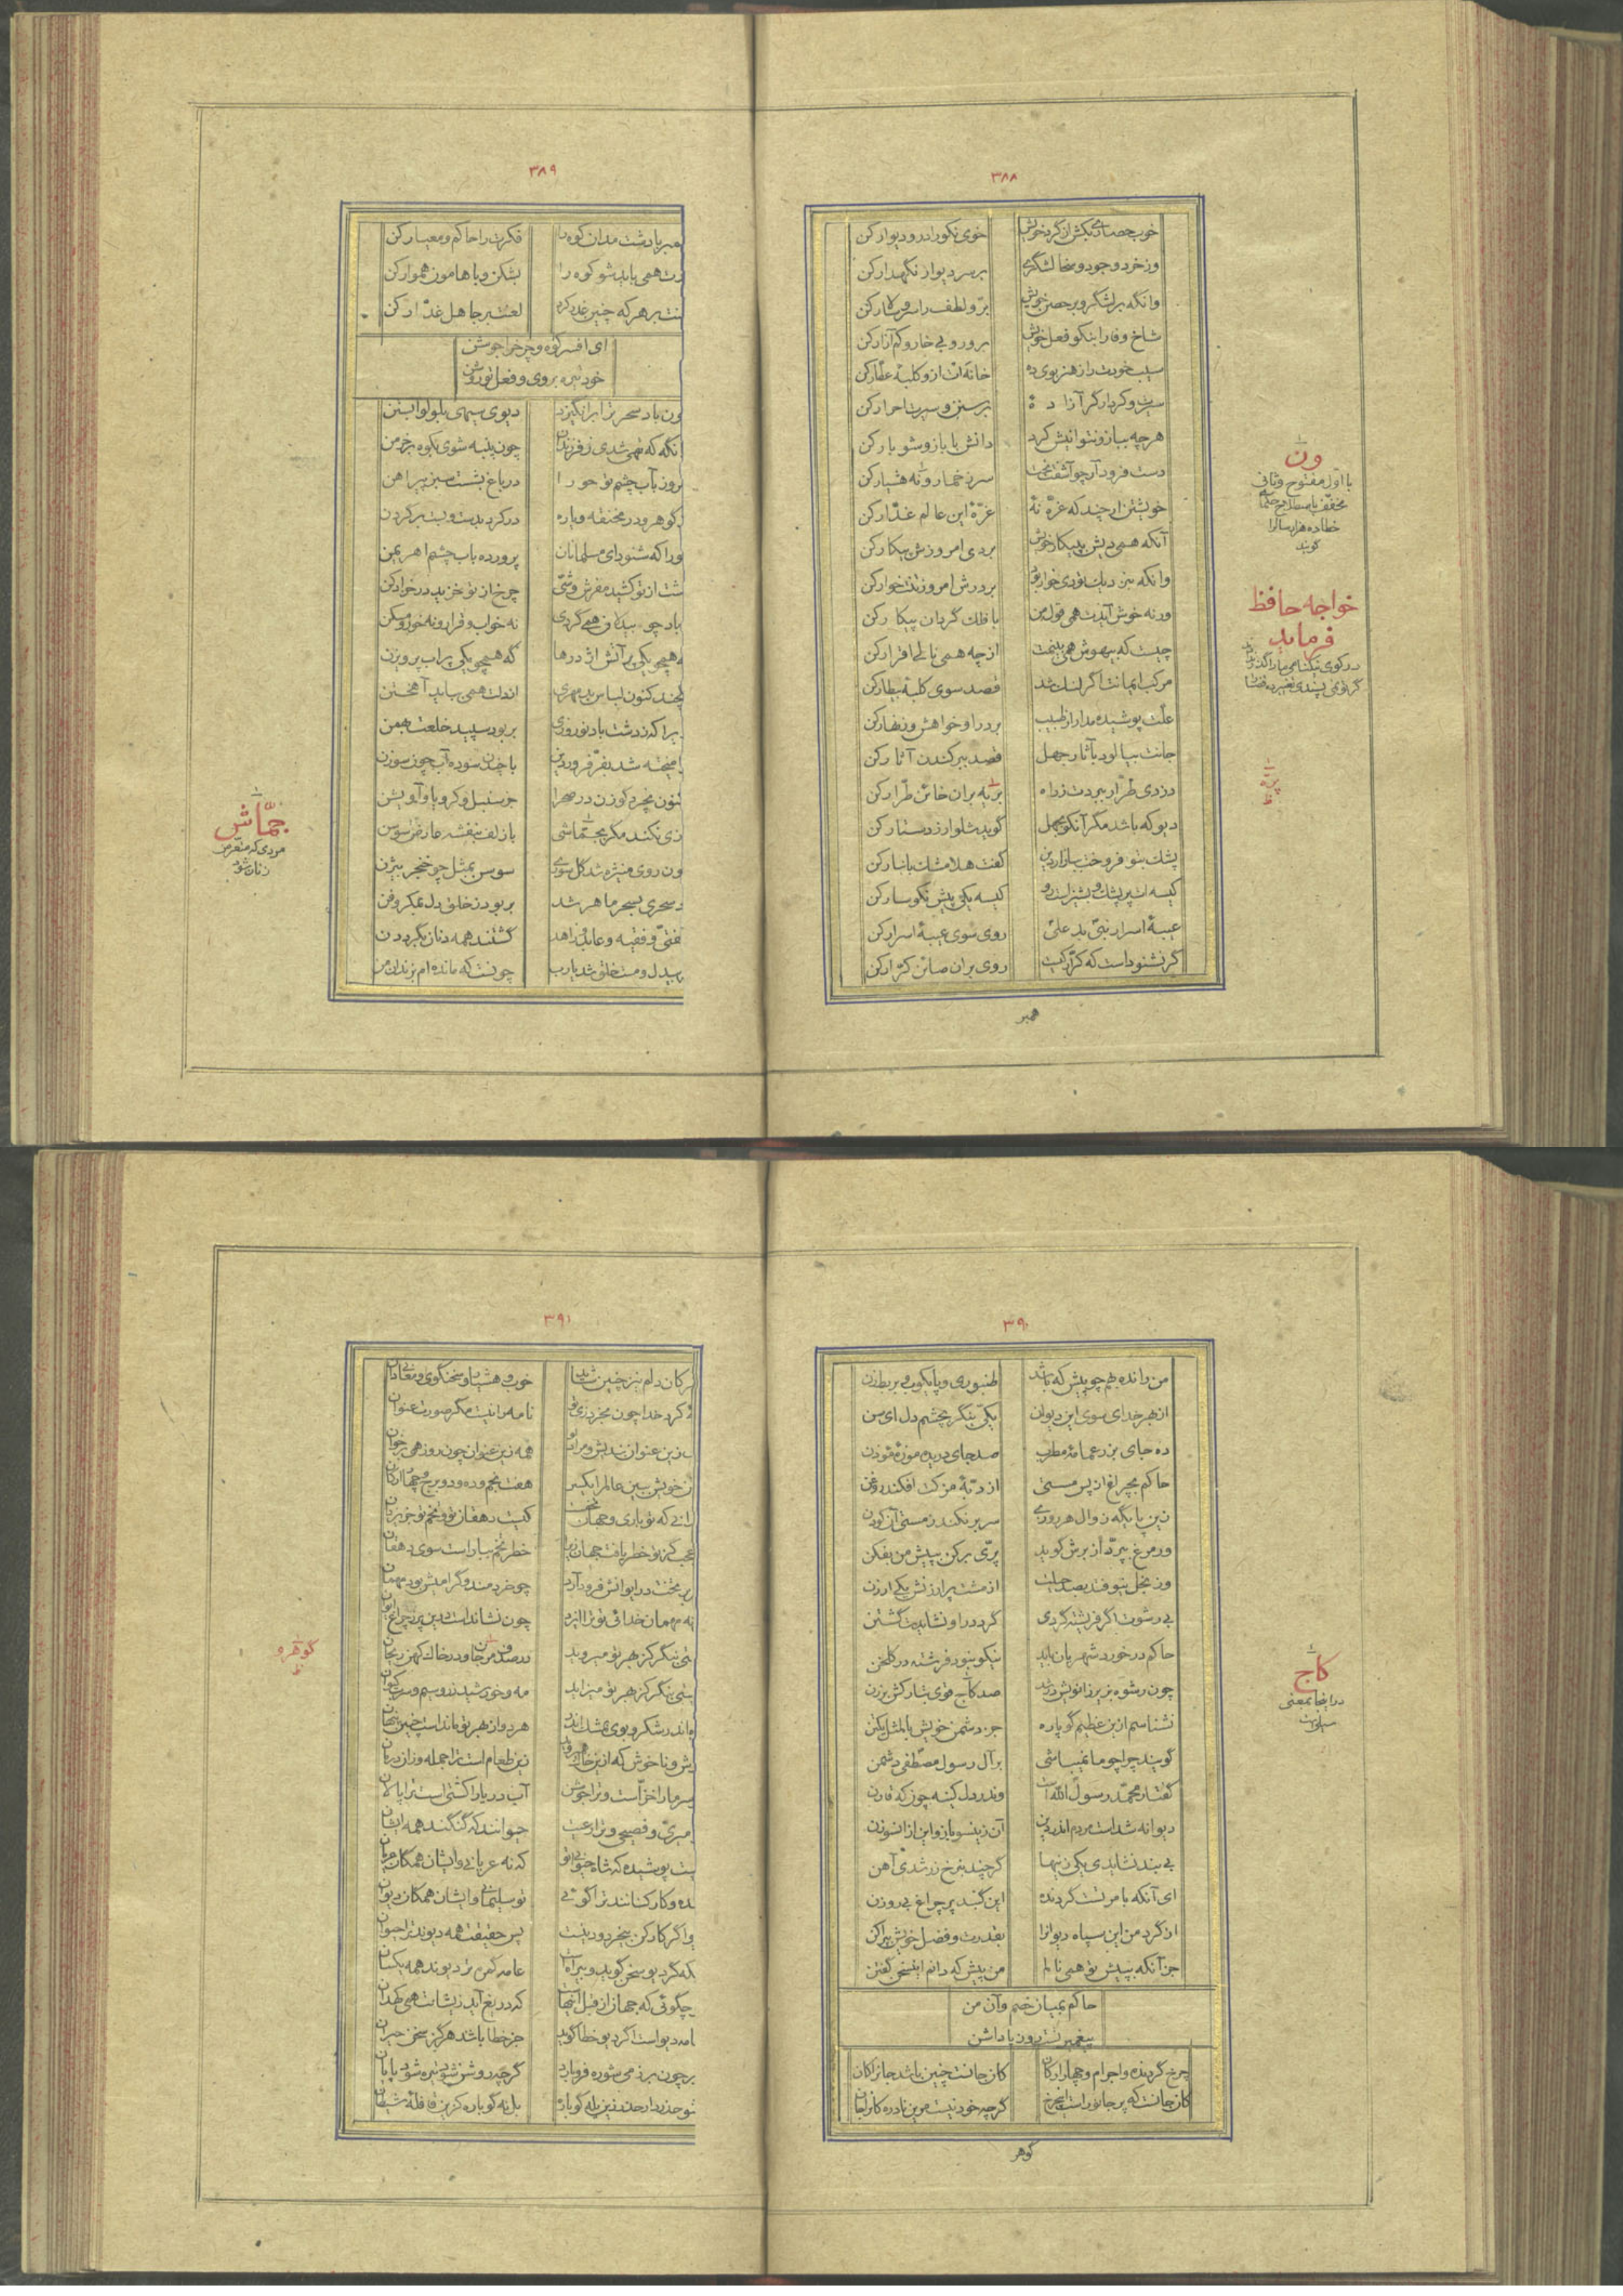 ۳۸۸
خوب حصاری بکش از گرد خویش خوی نکو را در و دیوار کن
وز خرد و جود و سخا لشگری بر سر دیوار نگهدار کن
وانگه بر لشگر و بر حصن خویش برّ و لطف را سر و سالار کن
شاخ وفا را بنکو فعل خویش برور و بی خار و کم آزار کن
سیب خودت را ز هنر بوی ده خانه ات از و کلبهٔ عطّار کن
سیرت و کردار گر آزاده برسنن و سیرت احرار کن
هرچه بباز و نتوانیش کرد دانش با بازو شو یار کن
دست فرود آر چو آشفت بخت سر ز خمار ونه هشیار کن
خویشتن ار چند که غرّهٔ نهٔ غرّهٔ این عالم غدّار کن
آنکه همی دیش به پیکار خویش بر دی امروزش بیکار کن
وانکه بنزدیک تو دی خوار بود بر درش امروز تنت خوار کن
ورنه خوش آیدت همی قول من با فلک گردان پیکار کن
چیست که بیهوش همی بینمت از چه همی نالی اقرار کن
مرکب ایمانت اگر لنگ شد قصد سوی کلبهٔ بیطار کن
علّت پوشیده مدار از طبیب بر در او خواهش و زنهار کن
جانت بیالود بآثار جهل قصد ببر کندن آثار کن
دزدی طرّار ببردت ز راه برّ به بران خائن طرّار کن
دیو که باشد مگر آنکو بجهل گوید شلوار ز دستار کن
پشک بتو فروخت ببازار دین گفت هلا مشک بانبار کن
کیسه ات پر پشک و پشیز است رو کیسه یکی پیش نگوسار کن
عیبهٔ اسرار نبی بد علی روی سوی عیبهٔ اسرار کن
گر نشنودست که کرّار کیست روی بران صائن کرّار کن
همبر
ون
با اوّل مفتوح و ثانی
مخفّف باصطلاح
خطا ده هزار سال را
گویند
خواجه حافظ
فرماید
در کوی نیکنامی ما را گذر ندادند
گر تو نمی پسندی تغییر ده قضا را
برّیه
ظ
۳۸۹
همبر با دشت مدان کوه را فکرت را حاکم و معیار کن
رت همی باید شو کوه را بشکن و با هامون هموار کن
نت بر هرکه چنین غدر کرد لعنت بر جاهل غدّار کن
ای افسر کوه و چرخ را جوشن
خود تیره بروی و فعل تو روشن
ون باد سحر ترا برانگیزد دیوی سیهی بلولو ابستن
انگه که تهی شدی ز فرزندان چون پنبه شوی بکوه بر خرمن
روز بآب چشم تو حورا در باغ بشست سبز پیراهن
گوهر و در مخنقه و یاره در کرد بدست و بست بر گردن
ورا که شنود ای مسلمانان پرورده باب چشم اهریمن
شت از تو کشید مفرش وشّی چرخ از تو خزید در خز ادکن
باد چو بیدلان همی گردی نه خواب و قرار و نه خور و مسکن
ه همچو یکی پر آتش اژدرها گه همچو یکی پر آب پرویزن
یخند کنون لباس بد مهری اندت همی بباید آهختن
یرا که ز دشت باد نوروزی بربود سپید خلعت بهمن
امیخته شد بفرّ فروردین با چندن سوده آب چون سوسن
کنون نچرد گوزن در صحرا جز سنبل و کرویا و آویشن
زی نکند مگر بجمّاشی با زلف بنفشه عارض سوسن
ون روی منیژه شد گل سوری سوسن بمثل چو خنجر بیژن
د سحری بسحر ماهر شد بربود ز خلق دل بمکر و فن
فتیّ و فقیه و عابد و زاهد گشتند همه دنان بگرد دن
بیدل و مست خلق شد یارب چونست که مانده ام بزندان من
جمّاش
مردی که متعرض
زنان شود
۳۹۰
من رانده بهم چو پیش که باشد طنبوری و پایکوب و بربط زن
از بهر خدای سوی این دیوان یکّی بنگر بچشم دل ای سن
ده جای بزر عمامهٔ مطرب صد جای دریده موزهٔ موذن
حاکم بچراغ در پس مستی از دبّهٔ مزکت افکند روغن
زین پایگه زوال هر روزی سر بر نکند ز مستی آن کودن
ور مرغ بپرّد از برش گوید پرّی برکن بپیش من بفکن
وز بخل بنوفتد بصد حیلت از مشت پر ارزنش یکی ارزن
بی رشوت اگر فرشته گردی گرد در او نشایدت گشتن
حاکم در خورد شهریان باید نیکو نبود فرشته در گلخن
چون رشوه بزیر زانویش در شد صد کاج قوی بتارکش برزن
نشناسم ازین عظیم گو باره جز دشمن خویش بالمثل یکتن
گویند چرا چو ما نمیباشی بر آل رسول مصطفی دشمن
گفتار محمّد رسول الله است وندر دل کینه چون که قارن
دیوانه شد است مردم اندر دین آن زینسو باز و این از انسوزن
بی بیند نشایدی یکی زینها گرچند بنرخ زر شدی آهن
ای آنکه بامر تست گردنده این گنبد پر چراغ بی روزن
از گرد من این سپاه دیوانرا بقدرت و فضل خویش بپراکن
جز آنکه بپیش تو همی نالم من پیش که دانم ایستی گفتن
حاکم بمیان خصم و آن من
پیغمبر تست روز پاداشن
چرخ گردنده و اجرام و چهار ارکان کان جانست چنین باشد جانرا کان
کان جانست که پر جانور است این چرخ گرچه خود نیست مرین نادره کانرا جان
گوهر
کاج
در اینجا بمعنی
سیلی است
۳۹۱
هر کان دلم نیز چنین شاید خوب و هشیار و سخنگوی و معانی دان
کرد خدا چون بخرد زی تو نامه مرا نیست مگر صورت عنوان
زین عنوان بندیش و مرا نو همه زین عنوان چون روز همی بر خوان
ن خویش ببین عالم را یکسر هفت نجم و ده و دو برج و چهار ارکان
رانی که تو باری و جهان تخم کیست دهقان تو و تخم تو جز یزدان
عجب کز تو خطر یافت جهان زیرا خطر تخم بیار است سوی دهقان
بر تخت در ایوانش فرود آرد چو خردمند و گرامیش بود مهمان
نه مهمان خدائی تو نرا ایزد چون نشانده است درین پر ز چراغ ایوان
نی نگر کز بهر تو میروید در صدف مرجان و در خاک کهن ریحان
نی بنگر کز بهر تو میزاید مه و خورشید زر و سیم و سرب کیوان
ه اندر شکر و بوی بمشک اندر هر دو از بهر تو ماندست چنین پنهان
ش و ناخوش که ازین خاک برون آید زین طعام است ترا جمله وزان درمان
سرما را خزّ است و ترا جوشن آب دریا را کشتی است ترا پالان
میری و فصیحی و ترا رعیت حیوانند که گنگند همه ایشان
یست پوشیده که شاه حیوانی تو که نه عریانی و ایشان همگان عریان
نده و کارکنانند ترا گوئی تو سلیمانی و ایشان همگان دیوان
و اگر کارکن بیخرد و دین است پس حقیقت همه دیوند ترا حیوان
که گردیو سخن گوید و بیراه است عامه گمره بتر دیوند همه یکسان
چگوئی که جهان از قبل اینهاست که دریغ آید زیشانت همی کهدان
امه دیو است اگر دیو خطا گوید جز خطا باشد هرگز سخن حیران
بر چون بر زمی شوره فرو بارد گرچه روشن شود تیره شود پایان
شو حذر دار حذر زین یله گو باره بل نه گو باره کزین قافلهٔ شیطان
گوهر و
ظ